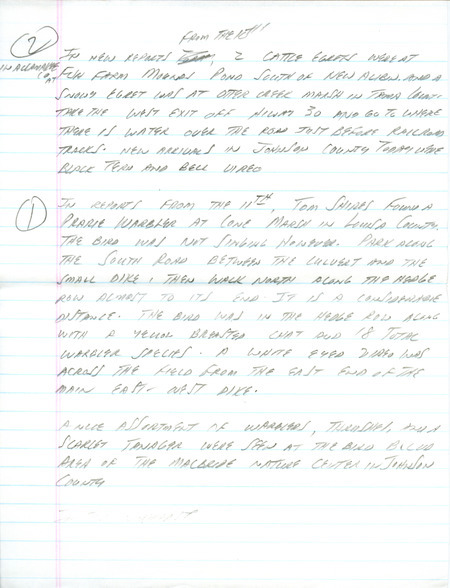 FROM THE 11TH
② IN NEW REPORTS 2 CATTLE EGRETS WERE AT
IN ALLAMAKEE CO AT
FISH FARM MOUNDS POND SOUTH OF NEW ALBIN. AND A
SNOWY EGRET WAS AT OTTER CREEK MARSH IN TAMA COUNTY.
TAKE THE WEST EXIT OFF HIWAY 30 AND GO TO WHERE
THERE IS WATER OVER THE ROAD JUST BEFORE RAILROAD
TRACKS. NEW ARRIVALS IN JOHNSON COUNTY TODAY WERE
BLACK TERN AND BELL VIREO
① IN REPORTS FROM THE 11TH, TOM SHIRES FOUND A
PRARIE WARBLER AT CONE MARSH IN LOUISA COUNTY.
THE BIRD WAS NOT SINGING HOWEVER. PARK ALONG
THE SOUTH ROAD BETWEEN THE CULVERT AND THE
SMALL DIKE, THEN WALK NORTH ALONG THE HEDGE
ROW ALMOST TO ITS END IT IS A CONSIDERABLE
DISTANCE. THE BIRD WAS IN THE HEDGE ROW ALONG
WITH A YELLOW BREASTED CHAT AND 18 TOTAL
WARBLER SPECIES. A WHITE EYED VIREO WAS
ACROSS THE FIELD FROM THE EAST END OF THE
MAIN EAST-WEST DIKE.
A NICE ASSORTMENT OF WARBLERS, THRUSHES, AND A
SCARLET TANAGER WERE SEEN AT THE BIRD BLIND
AREA OF THE MACBRIDE NATURE CENTER IN JOHNSON
COUNTY